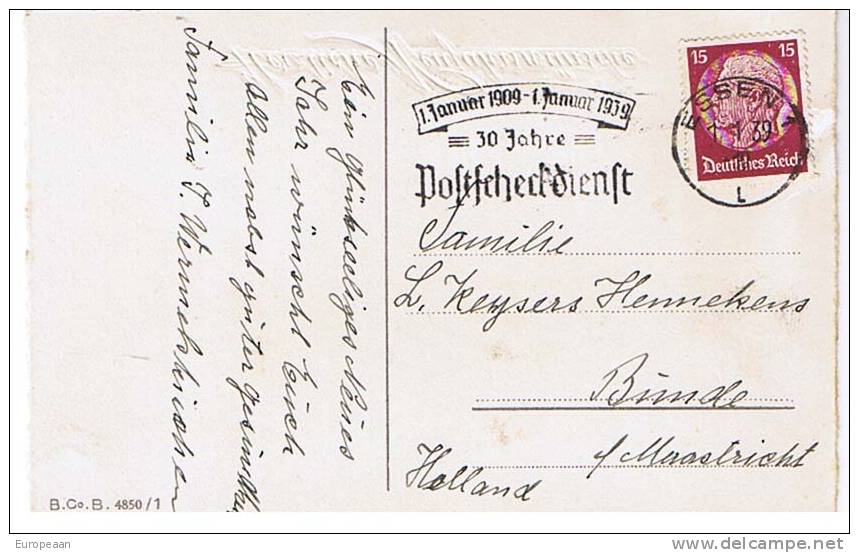 Herzliche Neujahrswünsche
Ein Glückseeliges Neues
Jahr wünscht Euch
allen nebst guter
Familie J. Wermelskirchen
B.Co.B. 4850/1
1. Januar 1909 - 1. Januar 1939
30 Jahre
Postscheckdienst
ESSEN 1
39
L
15 15
Deutsches Reich
Familie
L. Keysers Hennekens
Bunde
b/ Maastricht
Holland
Europeaan
delcampe.net